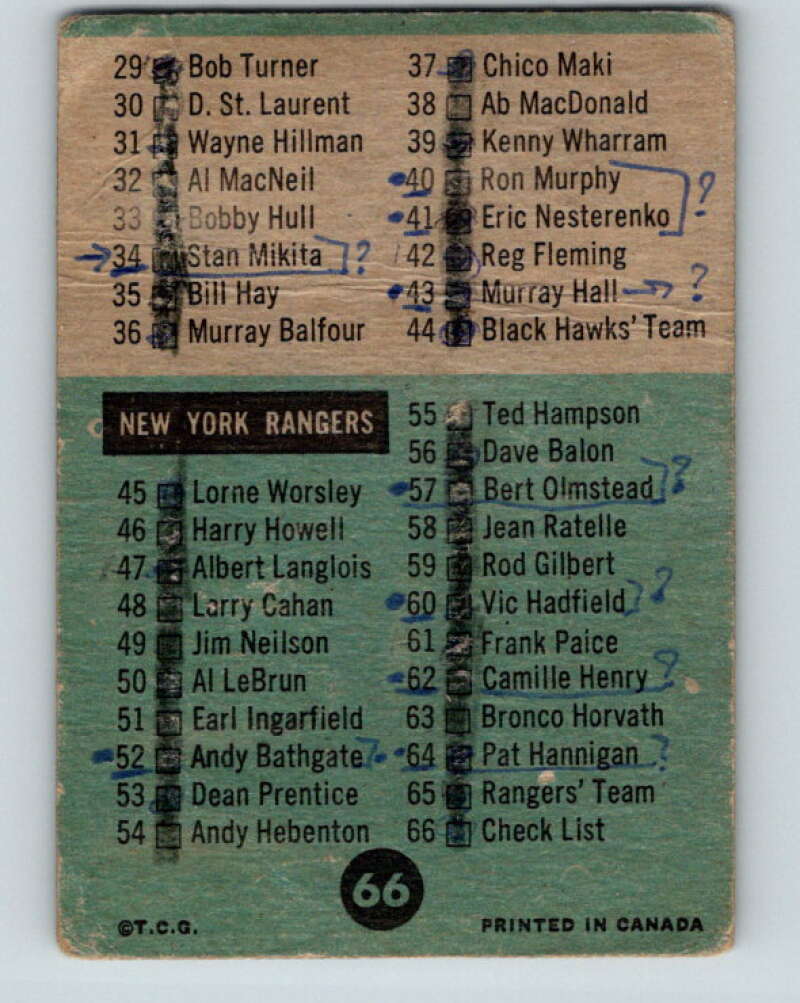 29 Bob Turner
30 D. St. Laurent
31 Wayne Hillman
32 Al MacNeil
33 Bobby Hull
→ 34 Stan Mikita ?
35 Bill Hay
36 Murray Balfour
37 Chico Maki
38 Ab MacDonald
39 Kenny Wharram
40 Ron Murphy ?
41 Eric Nesterenko
42 Reg Fleming
43 Murray Hall → ?
44 Black Hawks' Team
NEW YORK RANGERS
45 Lorne Worsley
46 Harry Howell
47 Albert Langlois
48 Larry Cahan
49 Jim Neilson
50 Al LeBrun
51 Earl Ingarfield
52 Andy Bathgate ?
53 Dean Prentice
54 Andy Hebenton
55 Ted Hampson
56 Dave Balon
57 Bert Olmstead ?
58 Jean Ratelle
59 Rod Gilbert
60 Vic Hadfield ?
61 Frank Paice
62 Camille Henry ?
63 Bronco Horvath
64 Pat Hannigan ?
65 Rangers' Team
66 Check List
66
©T.C.G.
PRINTED IN CANADA